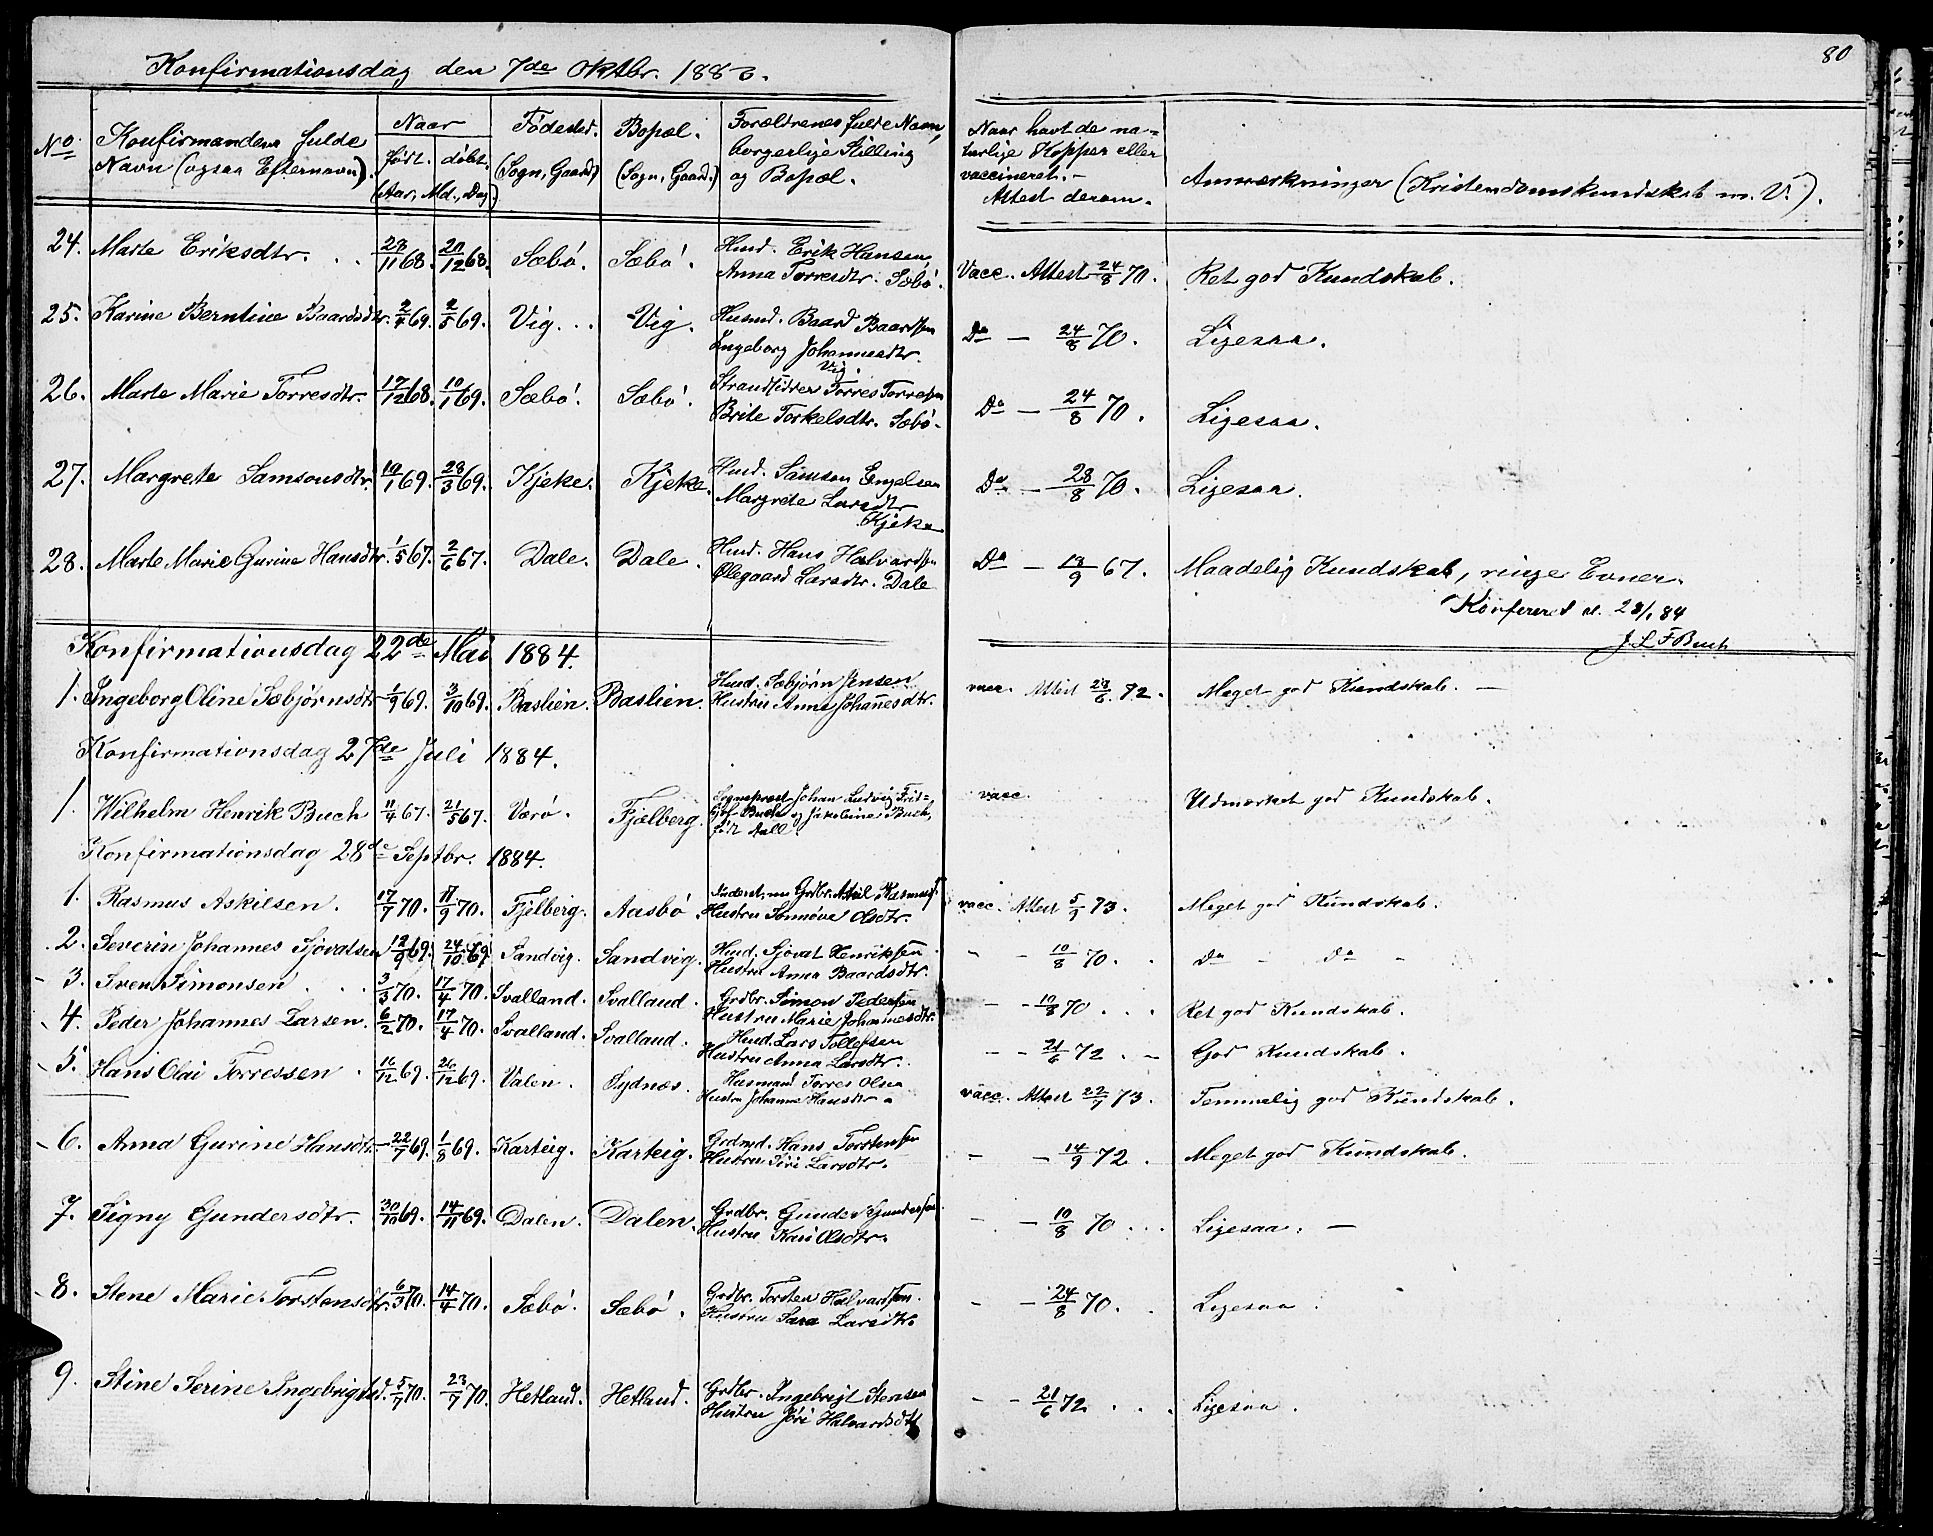 80
Konfirmationsdag den 7de Oktbr. 1883.
No. Konfirmandens fulde Navn (ogsaa Efternavn). Naar født. døbt. (Aar, Md., Dag) Fødested. (Sogn, Gaard) Bopæl. (Sogn, Gaard.) Forældrenes fulde Navn, borgerlige Stilling og Bopæl. Naar havt de naturlige Kopper eller vaccineret. - Attest derom. Anmærkninger (Kristendomskundskab m. V.).
24. Marte Eriksdtr. . . 28/11 68. 20/12 68. Sæbö. Sæbö. Hmd. Erik Hansen
Anna Torresdtr. Sæbö. Vacc. Attest 24/8 70. Ret god Kundskab.
25. Karine Berntine Baardsdtr. 2/4 69. 2/5 69. Vig. . . Vig. Husmd. Baard Baardsen
Ingeborg Johannesdtr.
Vig. Do — 24/8 70. Ligesaa.
26. Marte Marie Torresdtr. 17/12 68. 10/1 69. Sæbö. Sæbö. Strandsidder Torres Torresen
Brite Torkelsdtr. Sæbö. Do — 24/8 70. Ligesaa.
27. Margrete Samsonsdtr. 19/1 69. 28/3 69. Kjeke. Kjeke. Hmd. Samson Engelsen
Margrete Larsdtr
Kjeke Do — 28/8 70. Ligesaa.
28. Marte Marie Gurine Hansdtr. 1/5 67. 2/6 67. Dale. Dale. Hmd. Hans Halvardsen
Ølegaard Larsdtr. Dale Do — 19/9 67. Maadelig Kundskab, ringe Evner.
Konfereret d. 84
J. L. F. Buch
Konfirmationsdag 22de Mai 1884.
1. Ingeborg Oline Sæbjörnsdtr 1/9 69. 3/10 69. Baslien. Baslien. Hmd. Sæbjörn Jensen
Hustru Anna Johanesdtr. vacc. Attest 28/6. 72. Meget god Kundskab. —
Konfirmationsdag 27de Juli 1884.
1. Wilhelm Henrik Buch 11/4 67. 21/5 67. Værö. Fjælberg. Sogneprest Johan Ludvig Frid-
tjof Buch og Jakobine Buch,
født Dall. vacc. Udmærket god Kundskab.
Konfirmationsdag 28de Septbr. 1884.
1. Rasmus Askilsen. 17/7 70. 11/9 70. Fjelberg. Aasbö. Grdbr. Askil Rasmuss.
Hustru Sønnöve Olsdtr. vacc. Attest 5/9 73. Meget god Kundskab.
2. Severin Johannes Sjovatsen 12/9 69. 24/10 69 Sandvig. Sandvig. Hmd. Sjovat Henriksen
Hustru Anna Baardsdtr. - - 10/8 70. . Do - Do -
3. Sven Simonsen . . . 3/3 70. 17/4 70. Svalland. Svalland. Grdbr. Simon Pedersen
Hustru Marie Johanesdtr. - - 10/8 70 . . . Ret god Kundskab.
4. Peder Johannes Larsen. 6/2 70. 17/4 70. Svalland. Svalland. Hmd. Lars Tollefsen
Hustru Anna Larsdtr. - - 21/6 72. - God Kundskab.
5. Hans Olai Torressen . 16/12 69. 26/12 69. Valen. Sydnæs. Husmand Torres Olsen
Hustru Johanne Hansdtr. vacc. Attest 22/7 73. Temmelig god Kundskab.
6. Anna Gurine Hansdtr. 22/7 69. 1/8 69. Karteig. Karteig. Grdmd. Hans Torstensen
Hustru Siri Larsdtr. - - 14/9 72. Meget god Kundskab.
7. Signy Gundersdtr. 30/10 69. 14/11 69. Dalen. Dalen. Grdbr. Gunder Gundersen
Hustru Kari Olsdtr. - - 10/8 70 . . . Ligesaa. —
8. Stene Marie Torstensdtr. 6/3 70. 14/4 70. Sæbö. Sæbö. Grdbr. Torsten Halvardsen.
Hustru Sara Larsdtr. - - 24/8 70. . Ligesaa.
9. Stine Serine Ingebrigtsd. 5/7 70. 23/7 70. Hetland. Hetland. Grdbr. Ingebrigt Stensen
Hustru Jöri Halvardsdtr - - 21/6 72 . . . Ligesaa.